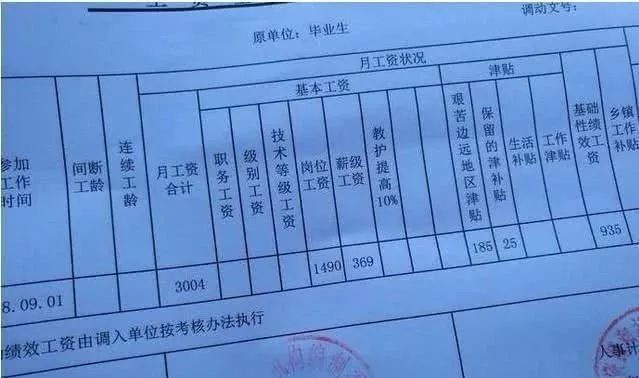 原单位：毕业生
调动文号：
月工资状况
基本工资
津贴
参加工作时间
间断工龄
连续工龄
月工资合计
职务工资
级别工资
技术等级工资
岗位工资
薪级工资
教护提高10%
艰苦边远地区津贴
保留的津补贴
生活补贴
工作津贴
基础性绩效工资
乡镇工作补贴
8.09.01
3004
1490
369
185
25
935
绩效工资由调入单位按考核办法执行
人事计